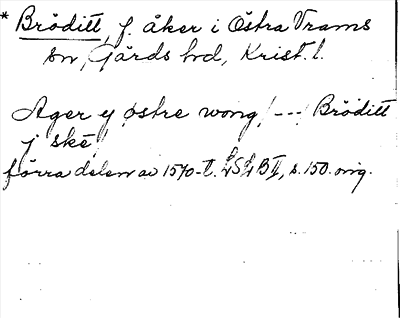 * Bröditt, f. åker i Östra Vrams
sn, Gärds hd, Krist. l.
Ager y østre wong, --- Bröditt
j ske,
förra delen av 1570-t. B II, s. 150. orig.